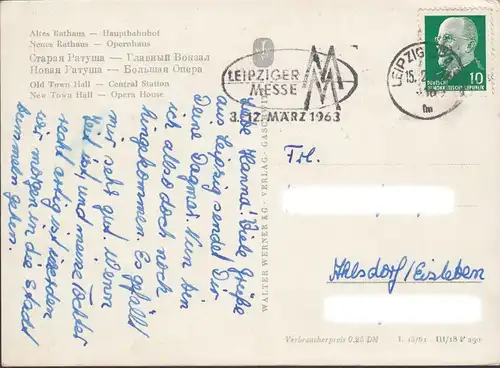 Altes Rathaus — Hauptbahnhof
Neues Rathaus — Opernhaus
Старая Ратуша — Главный Вокзал
Новая Ратуша — Большая Опера
Old Town Hall — Central Station
New Town Hall — Opera House
LEIPZIGER
MESSE
3.-12. MÄRZ 1963
LEIPZIG
15.
10
DEUTSCHE
DEMOKRATISCHE REPUBLIK
Liebe Hanna! Viele Grüße
aus Leipzig sendet Dir
Deine Dagmar. Nun bin
ich also doch noch
hingekommen. Es gefällt
mir sehr gut. Wenn
und meine Tochter
recht artig ist werden
wir morgen in die Stadt
bummeln gehen.
WALTER WERNER KG · VERLAG · GASCHWITZ
Frl.
Ahlsdorf/Eisleben
Verbraucherpreis 0,25 DM
I. 15/61 III/18 V 290